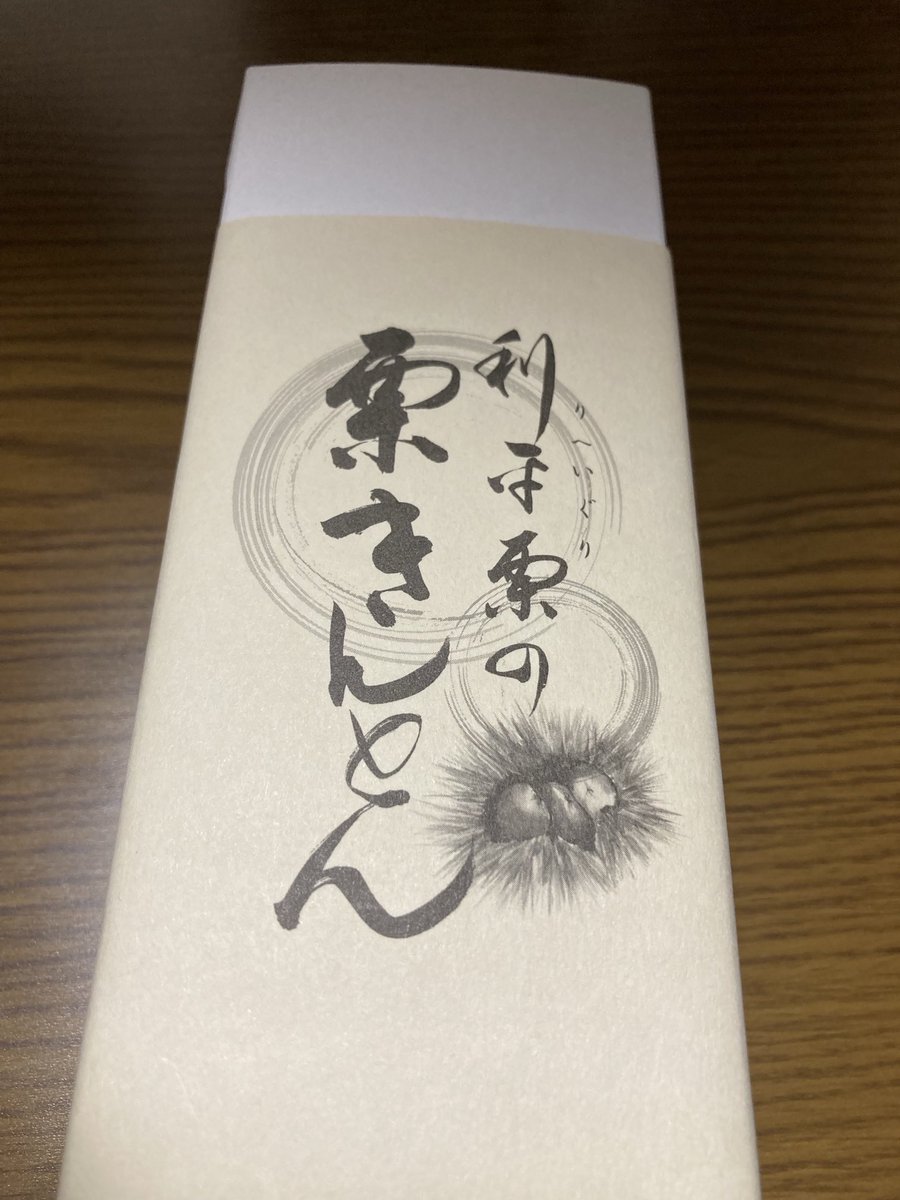 利平栗の
りへいぐり
栗きんとん